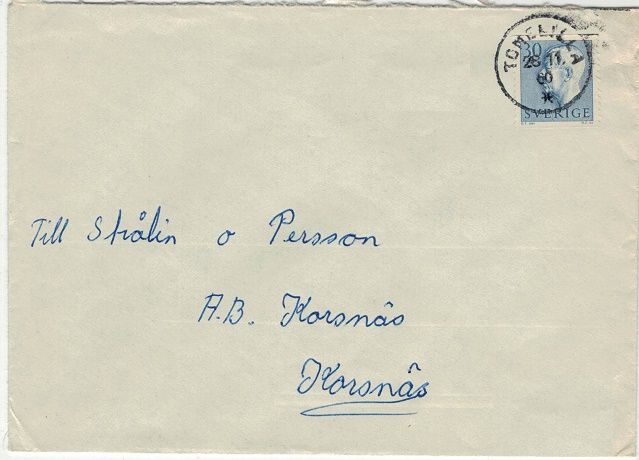 TOMELILLA
30
28.11.
60
SVERIGE
Till Strålin o Persson
A.B. Korsnäs
Korsnäs